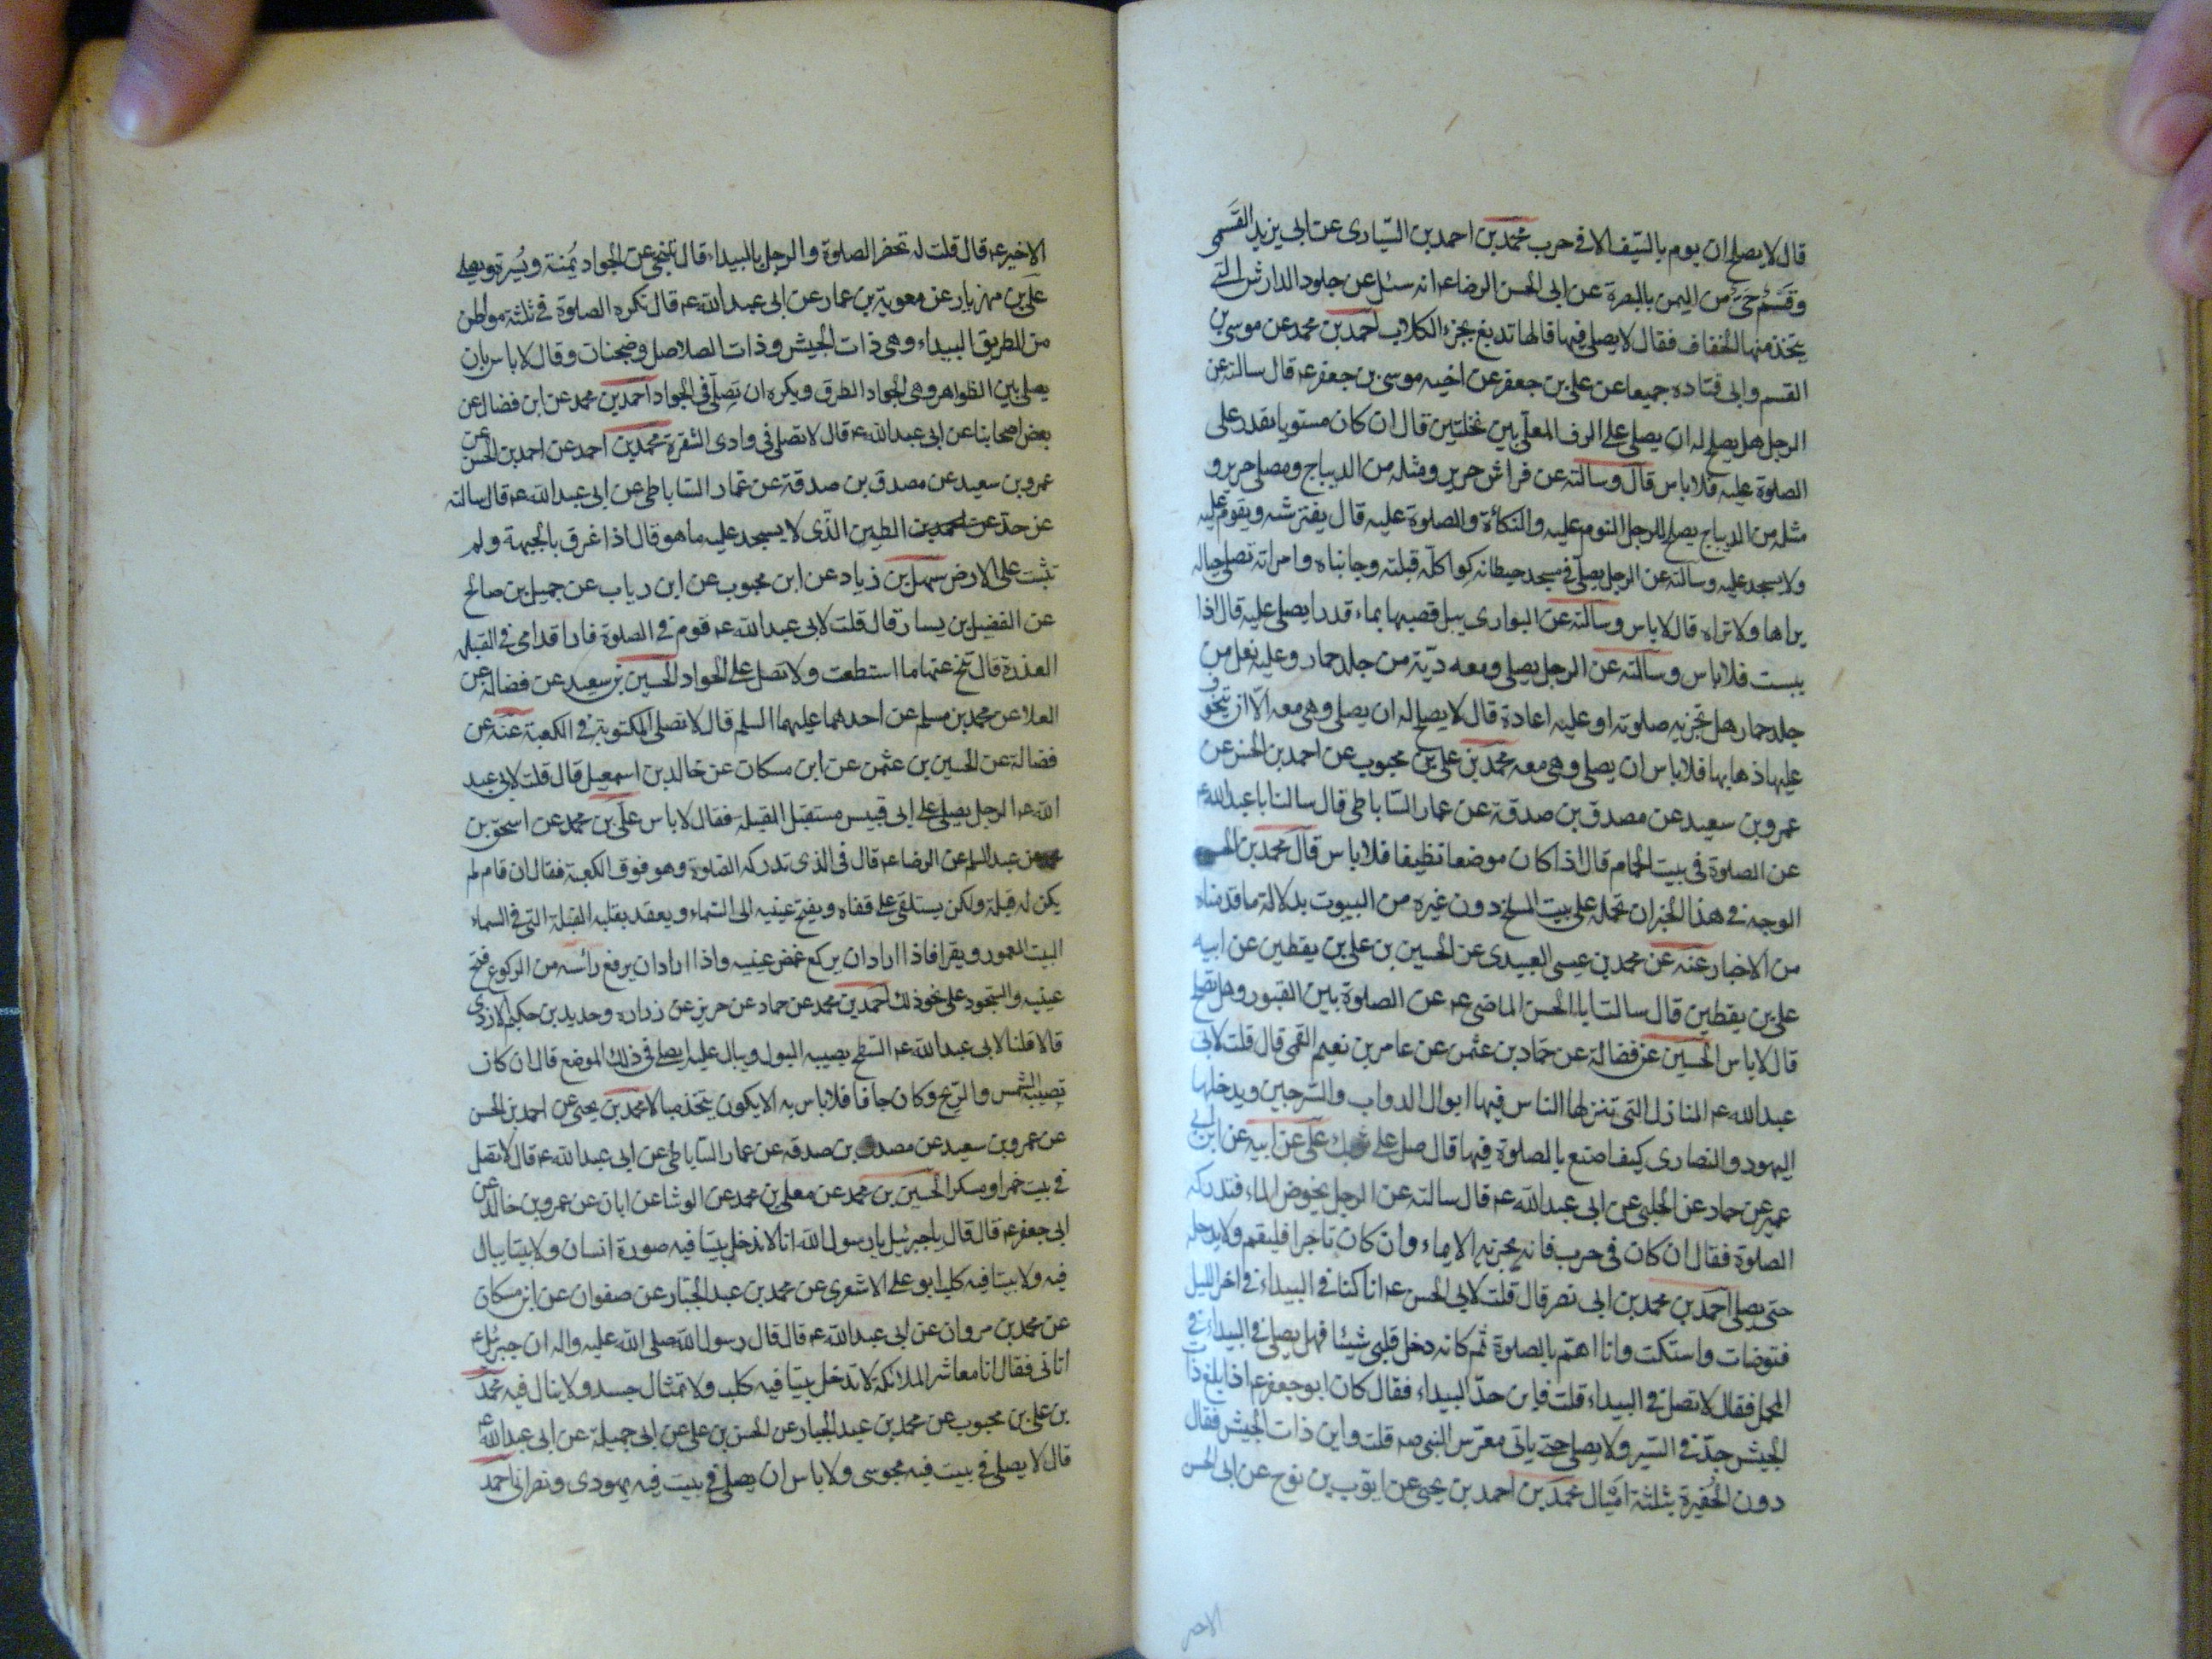 قال لا يصلح ان يوم بالسيف الا في حرب محمد بن احمد بن السيارى عن ابى يزيد القسمى
وقسم حى من اليمن بالبصرة عن ابى الحسن الرضا عه انه سئل عن جلود الدارش التى
يتخذ منها الخفاف فقال لا يصلى فيها فانها تدبغ بخرء الكلاب احمد بن محمد عن موسى بن
القسم وابى قتاده جميعا عن على بن جعفر عن اخيه موسى بن جعفر عه قال سالته عن
الرجل هل يصلح له ان يصلى على الرف المعلق بين نخلتين قال ان كان مستويا يقدر على
الصلوة عليه فلا باس قال وسالته عن فراش حرير ومثله من الديباج ومصلى حرير و
مثله من الديباج يصلح للرجل النوم عليه والتكأة والصلوة عليه قال يفترشه ويقوم عليه
ولا يسجد عليه وسالته عن الرجل يصلى فى مسجد حيطانه كوا كله قبلته وجانباه وامراته تصلى حياله
يراها ولا تراه قال لا باس وسالته عن البوارى يبل قصبها بماء قدر ايصلى عليه قال اذا
يبست فلا باس وسالته عن الرجل يصلى ومعه دبة من جلد حمار وعليه نعل من
جلد حمار هل تجزيه صلوته او عليه اعادة قال لا يصلح له ان يصلى وهى معه الا ان يتخوف
عليها ذهابها فلا باس ان يصلى وهى معه محمد بن على بن محبوب عن احمد بن الحسن عن
عمرو بن سعيد عن مصدق بن صدقة عن عمار الساباطى قال سالت ابا عبد الله عه
عن الصلوة فى بيت الحمام قال اذا كان موضعا نظيفا فلا باس قال محمد بن الحسن
الوجه فى هذا الخبر ان نحمله على بيت المسلخ دون غيره من البيوت بدلالة ما قدمناه
من الاخبار عنه عن محمد بن عيسى العبيدى عن الحسين بن على بن يقطين عن ابيه
على بن يقطين قال سالت ابا الحسن الماضى عه عن الصلوة بين القبور وهل تصلح
قال لا باس الحسين عن فضالة عن حماد بن عثمن عن عامر بن نعيم القمى قال قلت لابى
عبد الله عه المنازل التى تنزلها الناس فيها ابوال الدواب والسرجين ويدخلها
اليهود والنصارى كيف اصنع بالصلوة فيها قال صل على ثوبك على عن ابيه عن ابن ابى
عمير عن حماد عن الحلبى عن ابى عبد الله عه قال سالته عن الرجل يخوض الماء فتدركه
الصلوة فقال ان كان فى حرب فانه يجزيه الايماء وان كان تاجرا فليقم ولا يدخله
حتى يصلى احمد بن محمد بن ابى نصر قال قلت لابى الحسن عه انا كنا فى البيداء فى اخر الليل
فتوضات واستكت وانا اهم بالصلوة ثم كانه دخل قلبى شيئا فهل يصلى فى البيداء فى
المحمل فقال لا تصل فى البيداء قلت فاين حد البيداء فقال كان ابو جعفر عه اذا بلغ ذات
الجيش جد فى السير ولا يصلى حتى ياتى معرس النبى صه قلت واين ذات الجيش فقال
دون الحفيرة بثلثة اميال محمد بن احمد بن يحيى عن ايوب بن نوح عن ابى الحسن
الاخير
الاخير عه قال قلت له تحضر الصلوة والرجل بالبيداء قال يتنحى عن الجواد يمنة ويسرة ويصلى
على بن مهزيار عن معوية بن عمار عن ابى عبد الله عه قال تكره الصلوة فى ثلثة مواطن
من الطريق البيداء وهى ذات الجيش وذات الصلاصل وضجنان وقال لا باس بان
يصلى بين الظواهر وهى الجواد الطرق ويكره ان تصلى فى الجواد احمد بن محمد عن ابن فضال عن
بعض اصحابنا عن ابى عبد الله عه قال لا تصلى فى وادى الشقرة محمد بن احمد عن احمد بن الحسن عن
عمرو بن سعيد عن مصدق بن صدقة عن عمار الساباطى عن ابى عبد الله عه قال سالته
عن حد الطين الذى لا يسجد عليه ما هو قال اذا غرق بالجبهة ولم
تثبت على الارض سهل بن زياد عن ابن محبوب عن ابن رياب عن جميل بن صالح
عن الفضيل بن يسار قال قلت لابى عبد الله عه قوم فى الصلوة فارا قدامى فى القبلة
العذرة قال تنح عنها ما استطعت ولا تصل على الجواد الحسين بن سعيد عن فضالة عن
العلا عن محمد بن مسلم عن احدهما عليهما السلم قال لا تصلى المكتوبة فى الكعبة عنه عن
فضالة عن الحسين بن عثمن عن ابن مسكان عن خالد بن اسمعيل قال قلت لابى عبد
الله عه الرجل يصلى على ابى قبيس مستقبل القبلة فقال لا باس على بن محمد عن اسحق بن
محمد عن عبد السلم عن الرضا عه قال فى الذى تدركه الصلوة وهو فوق الكعبة فقال ان قام لم
يكن له قبلة ولكن يستلقى على قفاه ويفتح عينيه الى السماء ويعقد بقلبه القبلة التى فى السماء
البيت المعمور ويقرا فاذا اراد ان يركع غمض عينيه واذا اراد ان يرفع رأسه من الركوع فتح
عينيه والسجود على نحو ذلك احمد بن محمد عن حماد عن حريز عن زراره وحديد بن حكيم الازدى
قالا قلنا لابى عبد الله عه السطح يصيبه البول ويبال عليه ايصلى فى ذلك الموضع قال ان كان
تصيبه الشمس والريح وكان جافا فلا باس به الا يكون يتخذ مبالا محمد بن يحيى عن احمد بن الحسن
عن عمرو بن سعيد عن مصدق بن صدقه عن عمار الساباطى عن ابى عبد الله عه قال لا تصل
فى بيت خمر او مسكر الحسين بن محمد عن معلى بن محمد عن الوشا عن ابان عن عمرو بن خالد عن
ابى جعفر عه قال قال جبرئيل يا رسول الله انا لا ندخل بيتا فيه صورة انسان ولا بيتا يبال
فيه ولا بيتا فيه كلب ابو على الاشعرى عن محمد بن عبد الجبار عن صفوان عن ابن مسكان
عن محمد بن مروان عن ابى عبد الله عه قال قال رسول الله صلى الله عليه واله ان جبرئيل عه
اتانى فقال انا معاشر الملائكة لا ندخل بيتا فيه كلب ولا تمثال جسد ولا ينال فيه محمد
بن على بن محبوب عن محمد بن عبد الجبار عن الحسن بن على عن ابى جميلة عن ابى عبد الله عه
قال لا يصلى فى بيت فيه مجوسى ولا باس ان يصلى فى بيت فيه يهودى ونصرانى احمد